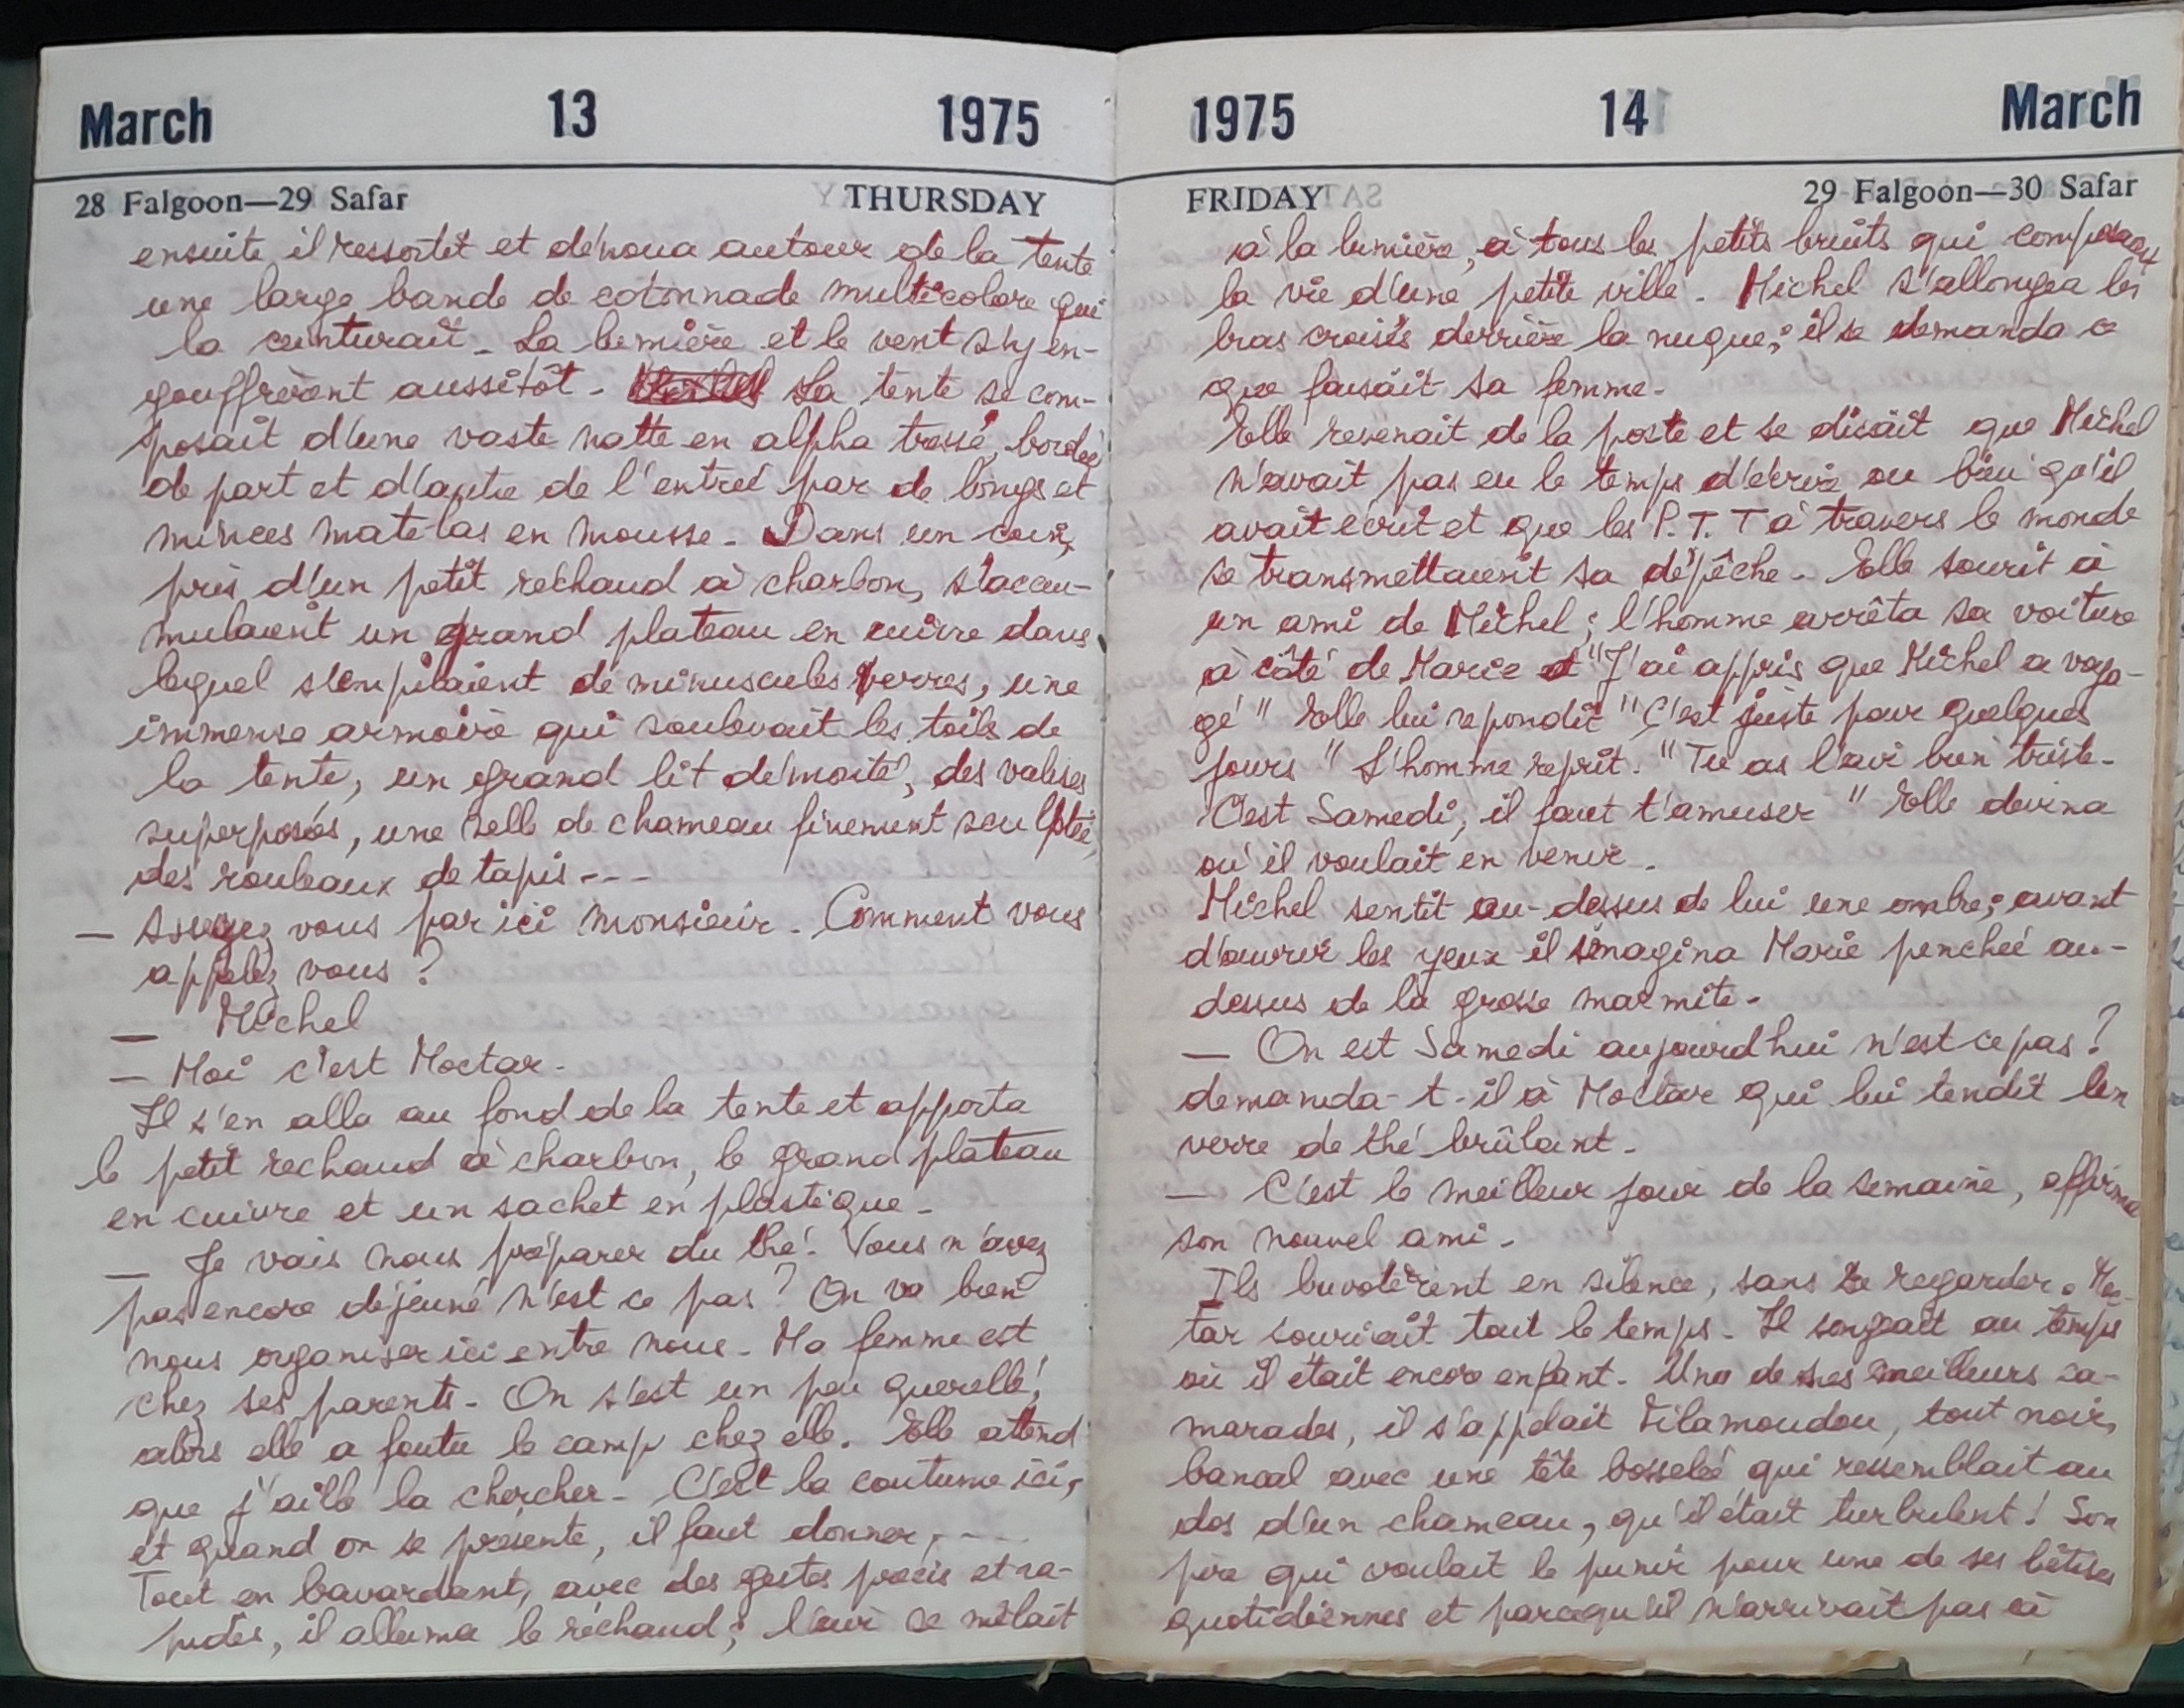 March 13 1975
28 Falgoon—29 Safar THURSDAY
ensuite il ressortit et dénoua autour de la tente
une large bande de cotonnade multicolore qui
la ceinturait. La lumière et le vent s'y en-
gouffrèrent aussitôt. La tente se com-
posait d'une vaste natte en alpha tressé, bordée
de part et d'autre de l'entrée par de longs et
minces matelas en mousse. Dans un coin,
près d'un petit réchaud à charbon, s'accu-
mulaient un grand plateau en cuivre dans
lequel s'empilaient de minuscules verres, une
immense armoire qui soulevait les toits de
la tente, un grand lit démonté, des valises
superposées, une selle de chameau finement sculptée,
des rouleaux de tapis ---
— Asseyez vous par ici monsieur. Comment vous
appelez vous ?
— Michel
— Moi c'est Moctar.
Il s'en alla au fond de la tente et apporta
le petit rechaud à charbon, le grand plateau
en cuivre et un sachet en plastique.
— Je vais nous préparer du thé. Vous n'avez
pas encore déjeuné n'est ce pas ? On va bien
nous organiser ici entre nous. Ma femme est
chez ses parents. On s'est un peu querellé,
alors elle a foutu le camp chez elle. Elle attend
que j'aille la chercher. C'est la coutume ici,
et quand on se présente, il faut donner, ---
Tout en bavardant, avec des gestes précis et ra-
pides, il alluma le réchaud ; l'air se mêlait
1975 14 March
FRIDAY 29 Falgoon—30 Safar
à la lumière, à tous les petits bruits qui composaient
la vie d'une petite ville. Michel s'allongea les
bras croisés derrière la nuque ; il se demanda ce
que faisait sa femme.
Elle revenait de la poste et se disait que Michel
n'avait pas eu le temps d'écrire ou bien qu'il
avait écrit et que les P.T.T à travers le monde
se transmettaient sa dépêche. Elle sourit à
un ami de Michel ; l'homme arrêta sa voiture
à côté de Marie et "J'ai appris que Michel a voya-
gé" Elle lui repondit "C'est juste pour quelques
jours" L'homme reprit. "Tu as l'air bien triste.
C'est Samedi, il faut t'amuser" Elle devina
où il voulait en venir.
Michel sentit au-dessus de lui une ombre ; avant
d'ouvrir les yeux il imagina Marie penchée au-
dessus de la grosse marmite.
— On est Samedi aujourd'hui n'est ce pas ?
demanda-t-il à Moctar qui lui tendit un
verre de thé brûlant.
— C'est le meilleur jour de la semaine, affirma
son nouvel ami.
Ils buvotèrent en silence, sans se regarder. Moc-
tar souriait tout le temps. Il songeait au temps
où il était encore enfant. Un de ses meilleurs ca-
marades, il s'appelait Silamoudou, tout noir,
bancal avec une tête bosselée qui ressemblait au
dos d'un chameau, qu'il était turbulent ! Son
père qui voulait le punir pour une de ses bêtises
quotidiennes et parcequ'il n'arrivait pas à